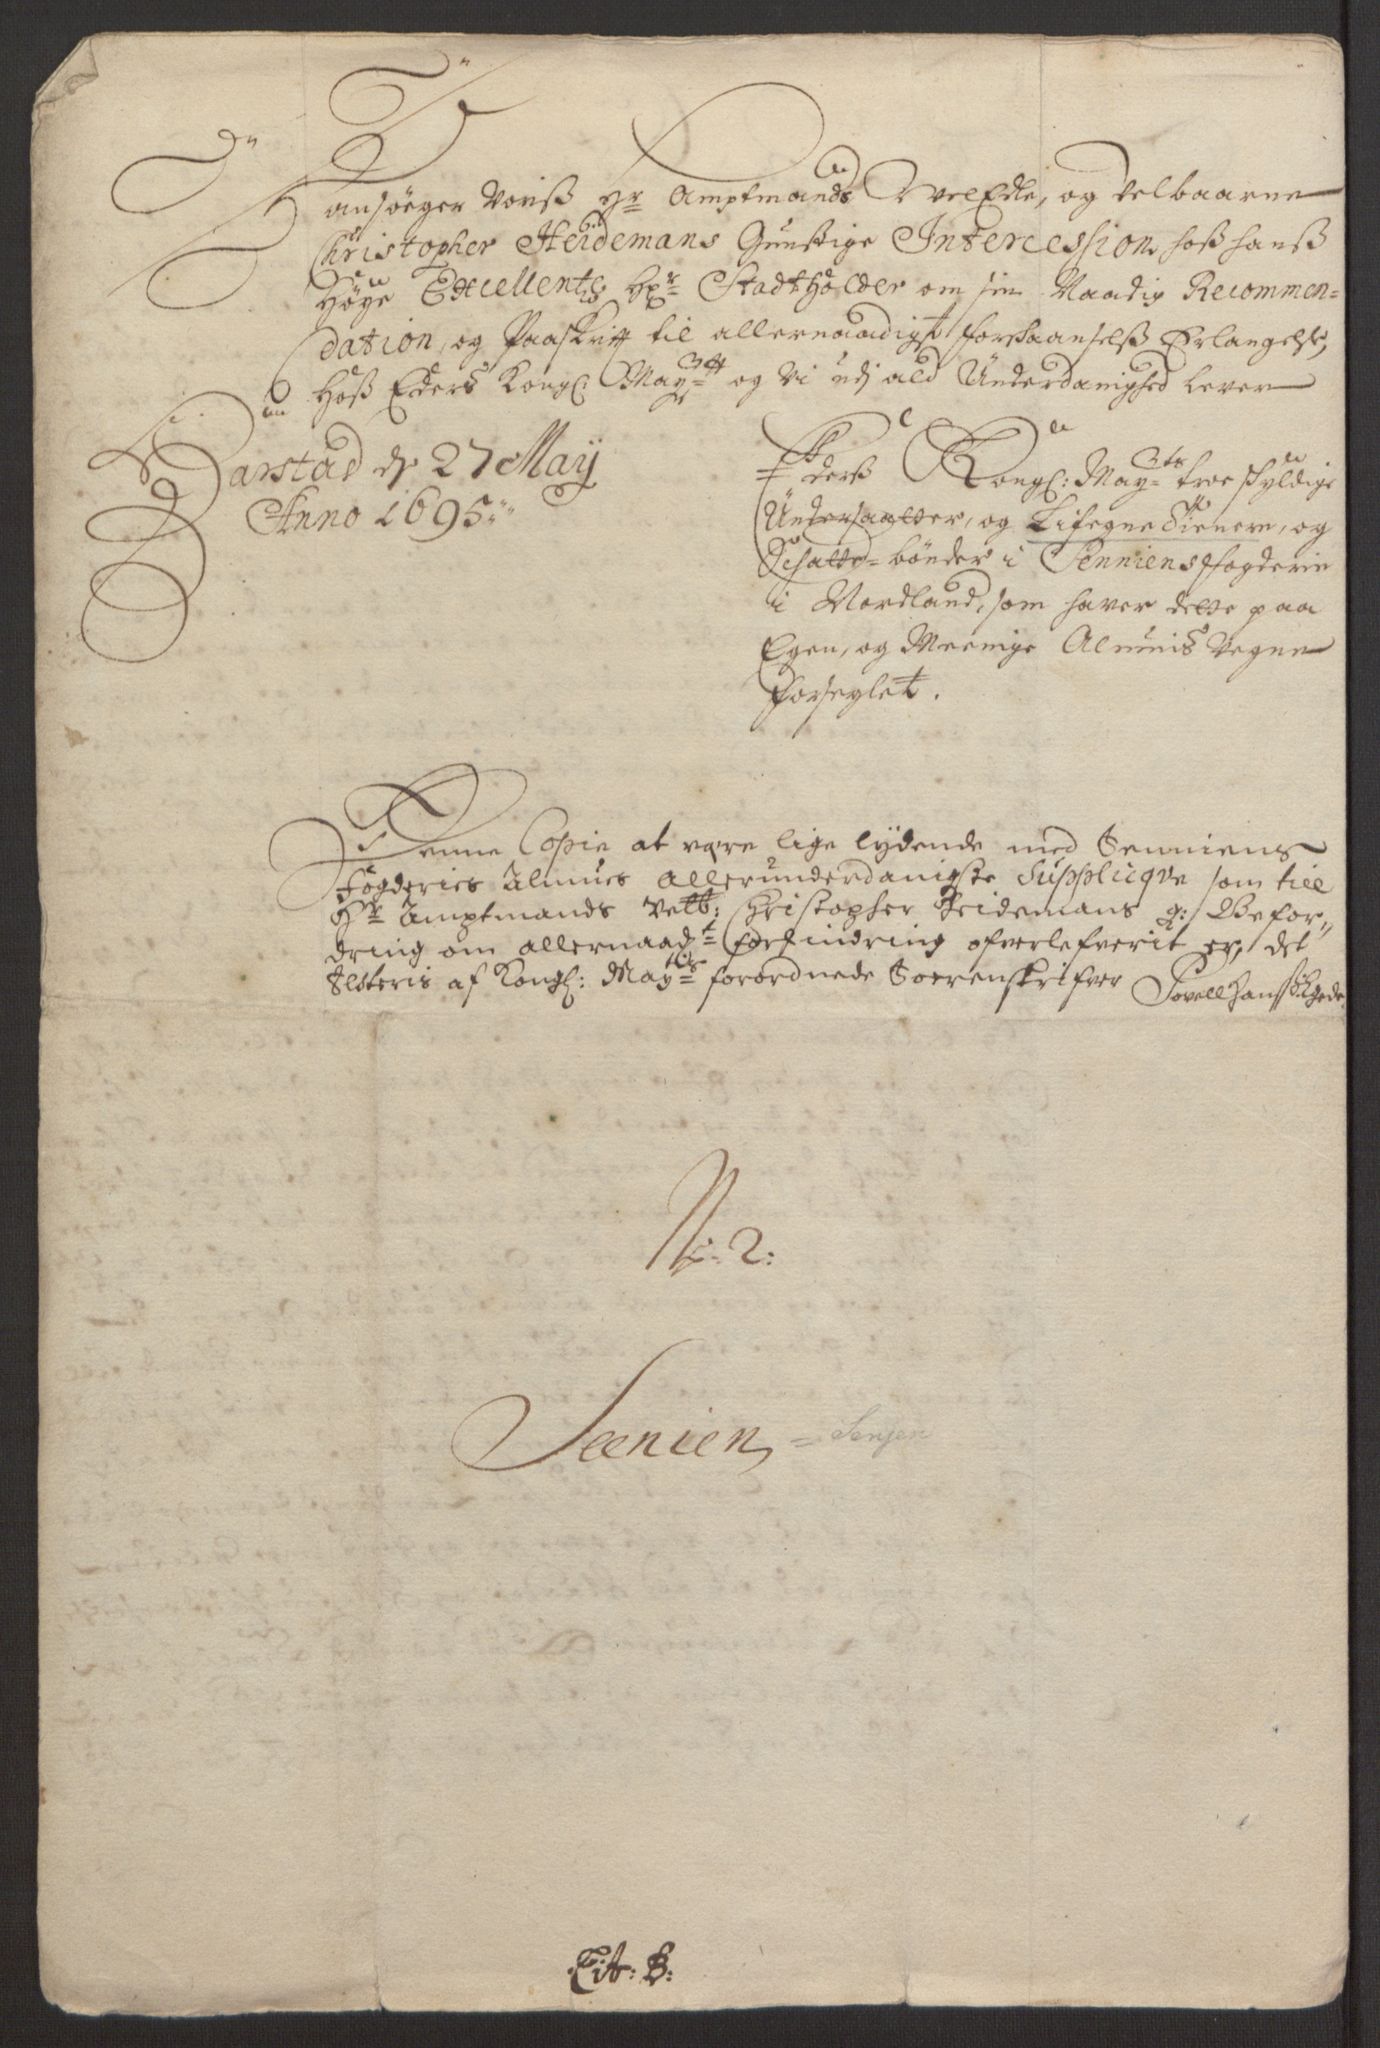 ansöeger voris Hr Amptmands VelEdle, og velbaarne
Christopher Heidemans Gunstige Intercession hoss hanss
Höye Excellentz Hr Stadtholder om sin Naadig Recommen=
dation, og Paaskrift til allernaadigst forskaanselss Erlangelse,
Hoss Eders Kongl. Maytt og vi udj ald Underdanighed lever
Harstad d. 27 Maij
Anno 1695
Eders Kongl: Mayts troe skyldige
Undersaatter, og Lifegne Tienere, og
Schatte=bönder i Senniens fogderie
i Nordland, som haver dette paa
Egen, og Meenige Almuis vegne
forseglet.
Denne Copie at være lige lydende med Senniens
fogderies Almues allerunderdanigste Supplicqve som till
Hr Amptmands Velb: Christopher Heidemans g: Befor=
dring om allernaadt forhindring ofverlefverit er, det
Testeris af Kongl: Mayts forordnede Sorenskrifver Povell Hanss Egede
No: 2:
Seenien = Senjen
Lit: B: